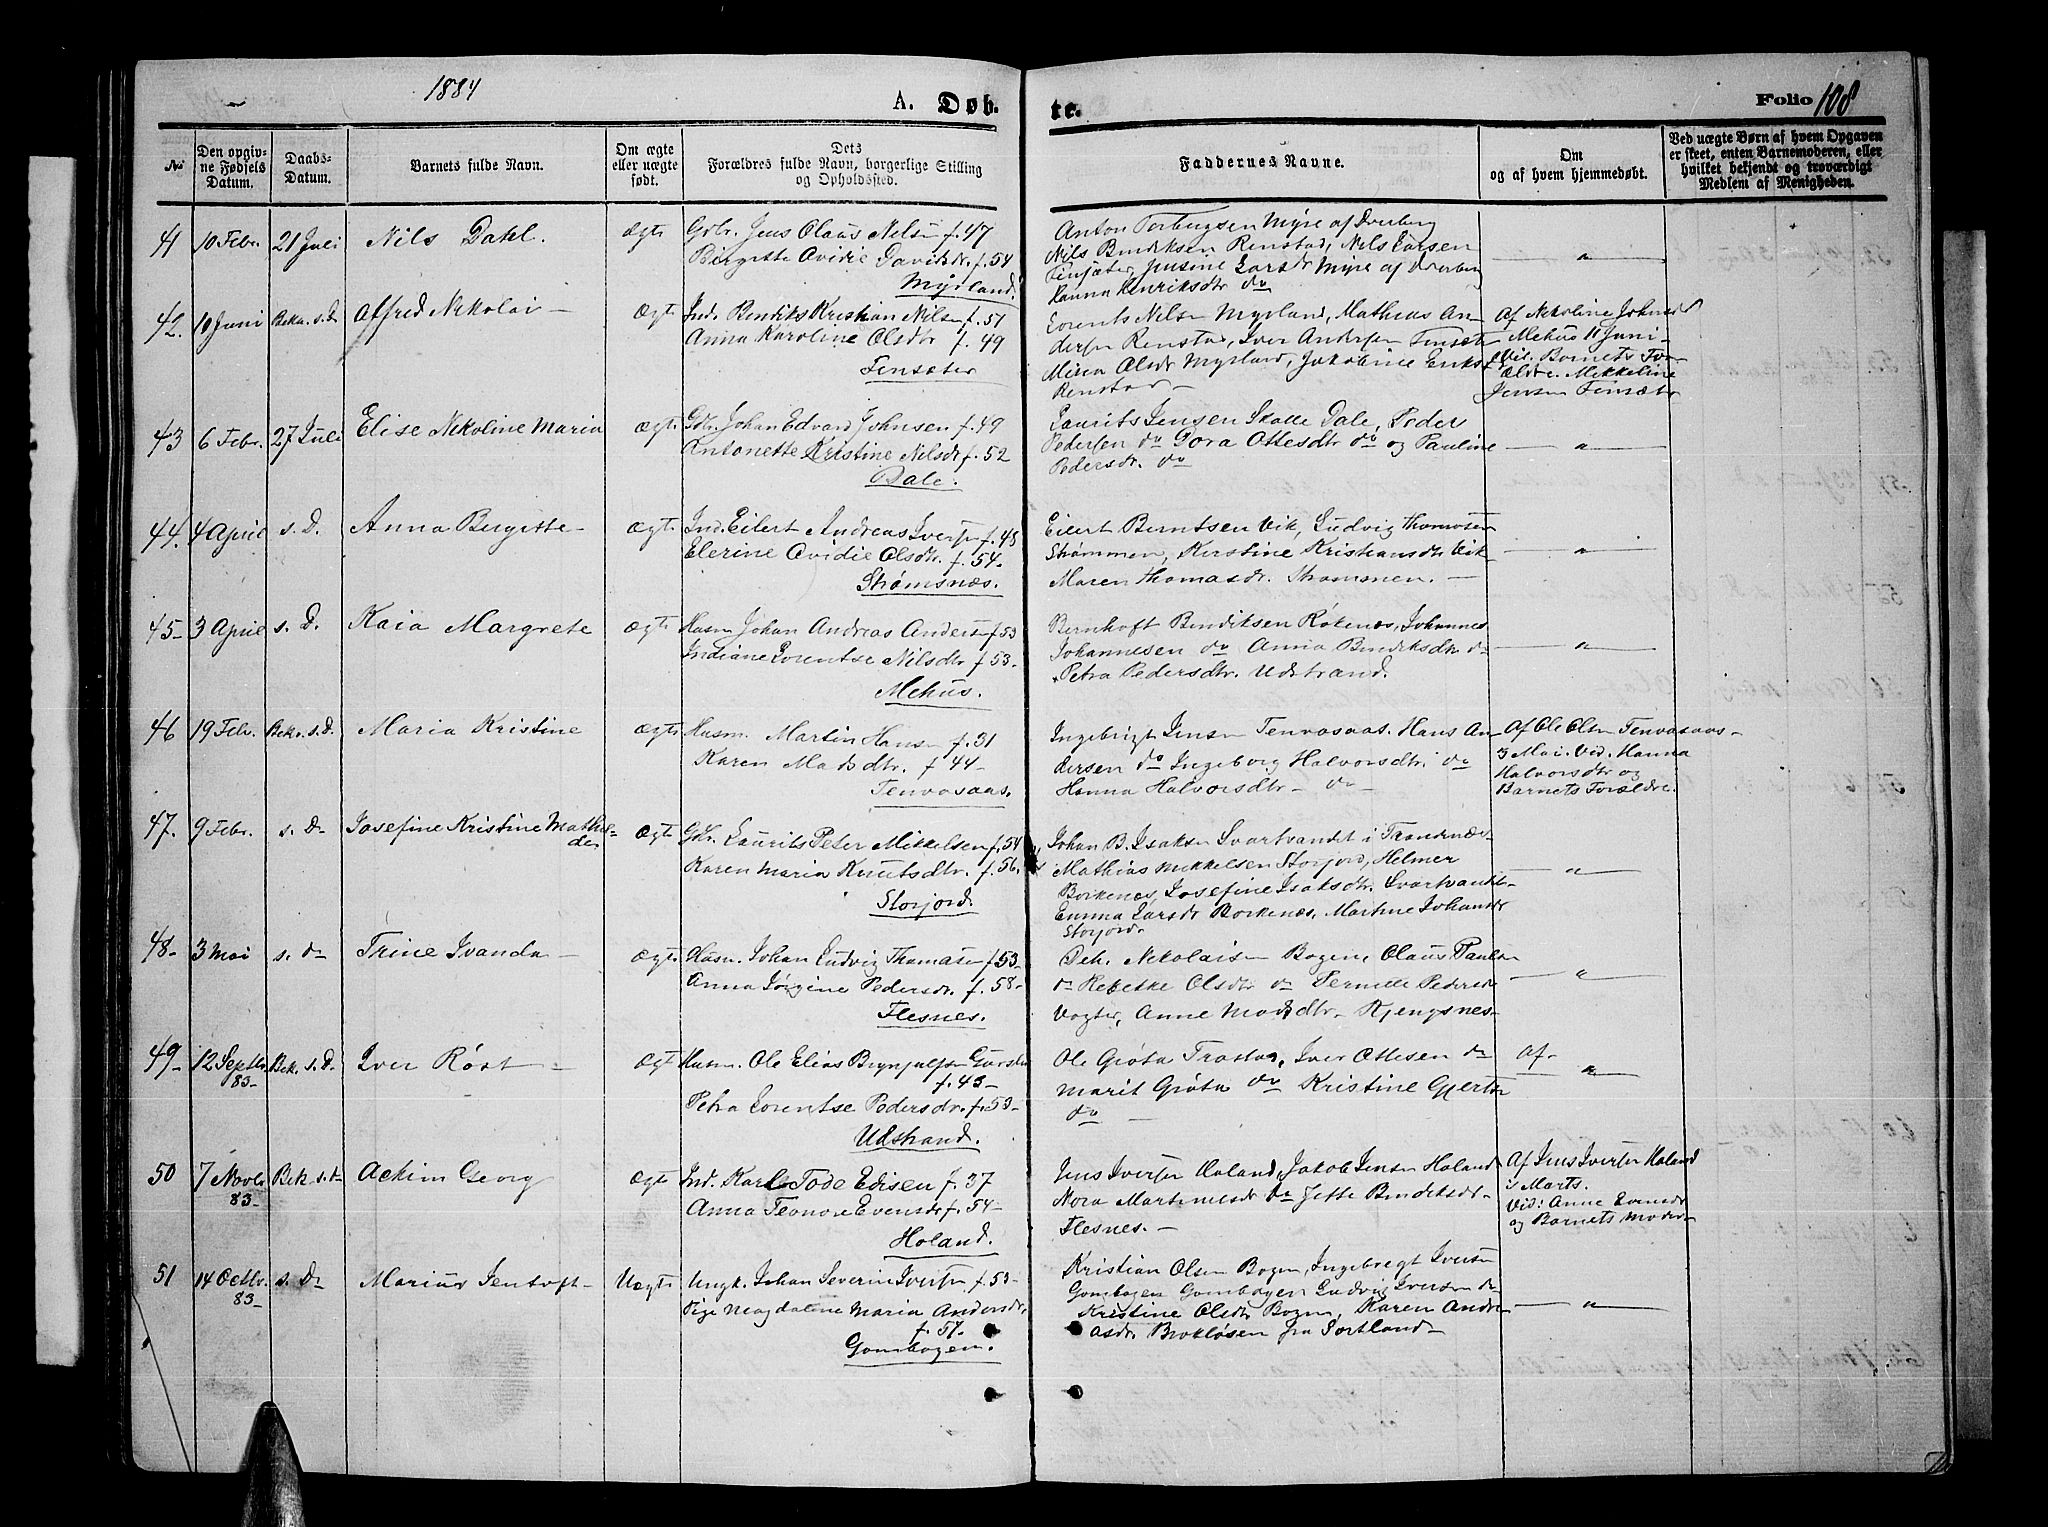 1884
A. Døb.
te.
Folio 108
No
Den opgivne Fødsels Datum.
Daabs-Datum.
Barnets fulde Navn.
Om ægte eller uægte født.
Dets Forældres fulde Navn, borgerlige Stilling og Opholdssted.
Faddernes Navne.
Om og af hvem hjemmedøbt.
Ved uægte Børn af hvem Opgaven er skeet, enten Barnemoderen, eller hvilket bekjendt og troværdigt Medlem af Menigheden.
41 10 Febr. 21 Juli Nils Dahl. ægte Gdbr. Jens Claus Nilsen f. 47
Birgitte Ovidie Davidsdr. f. 54
Myrland.
Anton Torbergsen Myre af Dverberg
Nils Bendiksen Renstad, Nils Larsen
Finsæter, Jensine Larsdr Myre af Dverberg
Hanna Henriksdtr do
— " —
42. 10 Juni Bekr. s. D Alfred Nikolai — Ægte Ind. Bendiks Kristian Nilsen f. 51
Anna Karoline Olsdtr f. 49
Finsæter
Lorents Nilsen Myrland, Mathias An-
dersen Renstad, Iver Andersen Finsæter
Mina Olsdr Myrland, Jakobine Eriksd
Renstad —
Af Nikoline Johnsd
Mehus 11 Juni —
Vid. Barnets For-
ældre. Mikkeline
Jensen Finsætr
43 6 Febr. 27 Juli Elise Nikoline Maria ægte Gdbr. Johan Edvard Johnsen f. 49
Antonette Kristine Nilsdr f. 52
Dale.
Laurits Jensen Skalle Dale, Peder
Pedersen do Dora Ottesdtr do og Pauline
Pedersdr. do
— " —
44. 4 April s. D. Anna Birgitte — Ægte Ind. Eilert Andreas Iversen f. 48
Elerine Ovidie Olsdtr. f. 54 —
Strømsnæs.
Eilert Berntsen Vik, Ludvig Thomasen
Strømmen, Kirstine Kristiansdtr Vik
Maren Thomasdr. Strømmen. —
— " —
45 — 3 April s. D. Kaia Margrete ægte Husm Johan Andreas Andersen f 53
Indiane Lorentse Nilsdtr f 53 —
Mehus.
Bernhoft Bendiksen Røkenæs, Johannes
Johannesen do Anna Bendiksdtr do
Petra Pedersdtr. Udstrand.
— " —
46 19 Febr. Bekr. s. D. Maria Kristine ægte Husm. Martin Hansen f. 31
Karen Madsdtr. f 44 —
Tenvosaas.
Ingebrigt Jensen Tenvosaas. Hans An-
dersen do Ingeborg Halvorsdtr. do
Hanna Halvorsdtr — do —
Af Ole Olsen Tenvosaas —
3 Mai. Vid. Hanna
Halvorsdtr og
Barnets Forældre.
47. 9 Febr. s. D — Josefine Kristine Mathil-
de ægte Gdbr. Laurits Peter Mikkelsen f. 54
Karen Maria Knutsdtr. f. 56.
Storjord.
Johan B. Isaksen Svartvandet i Trondenæs
Mathias Mikkelsen Storjord, Helmer
Borkenæs, Josefine Isaksdtr. Svartvandet
Emma Larsdr Borkenæs, Martine Johansdr
Storjord.
— " —
48 — 3 Mai s. D Trine Ivanda — ægte Husm. Johan Ludvig Thomasen f 53 —
Anna Jørgine Pedersdr. f. 58 —
Flesnes.
Nikolaisen Bogen, Claus Paulsen
do Rebekke Olsdtr do Pernille Pedersdr
Vogter, Anne Monsdtr — Kjengsnes —
— " —
49 — 12 Septbr. 83 — Bek. s. D. Iver Røst — ægte Husm. Ole Elias Brynjulfsen
f. 43 —
Petra Lorentse Pedersdr. f. 53 —
Udstrand.
Ole Grøta Trastad, Iver Ottesen do
Marit Grøta do Kristine Gjertsen
do —
Af —
— " —
50 7 Novbr 83 — Bek. s. D Achim Georg ægte Ind. Karl Tode Edisen f. 37
Anna Leonore Evensdr f. 54 —
Holand.
Jens Iversen Holand, Jakob Jensen Holand
Nora Martinusdr do Jette Bendiksdr —
Flesnes. —
Af Jens Iversen Holand
i Marts.
Vid: Anne Evensdr
og Barnets Moder —
51 14 Octbr. 83 — s. D — Marius Jentoft — Uægte Ungk. Johan Severin Iversen f. 53 —
Pige Magdalene Maria Andersdr.
f. 57.
Gombogen.
Kristian Olsen Bogen, Ingebregt Iversen
Gombogen Gombogen Ludvig Iversen do
Kristine Olsdtr Bogen, Karen Andre-
asdr Brokløsen fra Sortland —
— " —